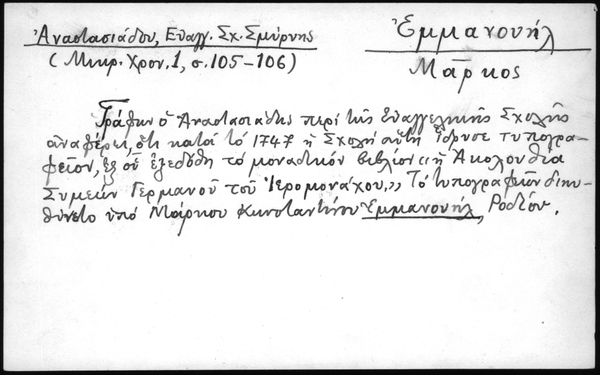 Ἀναστασιάδου, Εὐαγγ. Σχ. Σμύρνης
(Μικρ. Χρον. 1, σ. 105-106)
Ἐμμανουήλ
Μᾶρκος
Γράφων ὁ Ἀναστασιάδης περὶ τῆς Εὐαγγελικῆς Σχολῆς
ἀναφέρει, ὅτι κατὰ τὸ 1747 ἡ Σχολὴ αὕτη ἵδρυσε τυπογρα-
φεῖον, ἐξ οὗ ἐξεδόθη τὸ μοναδικὸν βιβλίον „ἡ Ἀκολουθία
Συμεὼν Γερμανοῦ τοῦ Ἱερομονάχου.„ Τὸ τυπογραφεῖον διηυ-
θύνετο ὑπὸ Μάρκου Κωνσταντίνου Ἐμμανουήλ, Ροδίου.